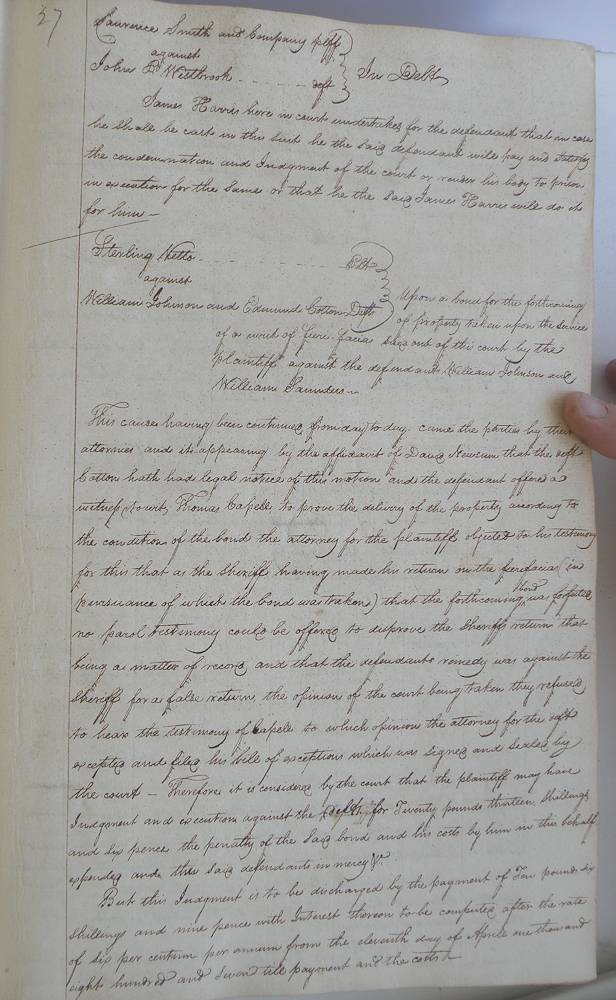 27
Laurence Smith and Company plff
against
John B Westbrook - - - - - - deft
In Debt
James Harris here in court undertakes for the defendant that in case
he shall be cast in this suit he the said defendant will pay and satisfy
the condemnation and Judgment of the court or render his body to prison
in execution for the same or that he the said James Harris will do it
for him —
Sterling - - - - - - - - Plt
against
William Johnson and Edmund Cotton Defts
Upon a bond for the forthcoming
of property taken upon the service
of a writ of fieri-facias sued out of this court by the
plaintiff against the defendants William Johnson and
William Saunders —
This cause having been continued from day to day came the parties by their
attornies and it appearing by the affidavit of David Newsum that the deft
Cotton hath had legal notice of this motion and the defendant offered a
witness towit, Thomas Capell to prove the delivery of the property according to
the condition of the bond the attorney for the plaintiff objected to his testimony
for this that as the Sheriff having made his return on the fierefacias (in
persuance of which the bond was taken) that the forthcoming bond was forfeited
no parol testimony could be offered to disprove the Sheriffs return that
being a matter of record and that the defendants remedy was against the
Sheriff for a false return, the opinion of the court being taken they refused
to hear the testimony of Capell to which opinion the attorney for the deft
excepted and filed his bill of exceptions which was signed and sealed by
the court — Therefore it is considered by the court that the plaintiff may have
Judgment and execution against the defts for Twenty pounds thirteen shillings
and six pence the penalty of the said bond and his costs by him in this behalf
expended and the said defendants in mercy &c.
But this Judgment is to be discharged by the payment of Ten pounds six
shillings and nine pence with Interest thereon to be computed after the rate
of six per centum per annum from the eleventh day of Aprile one thousand
eight hundred and seven till payment and the costs